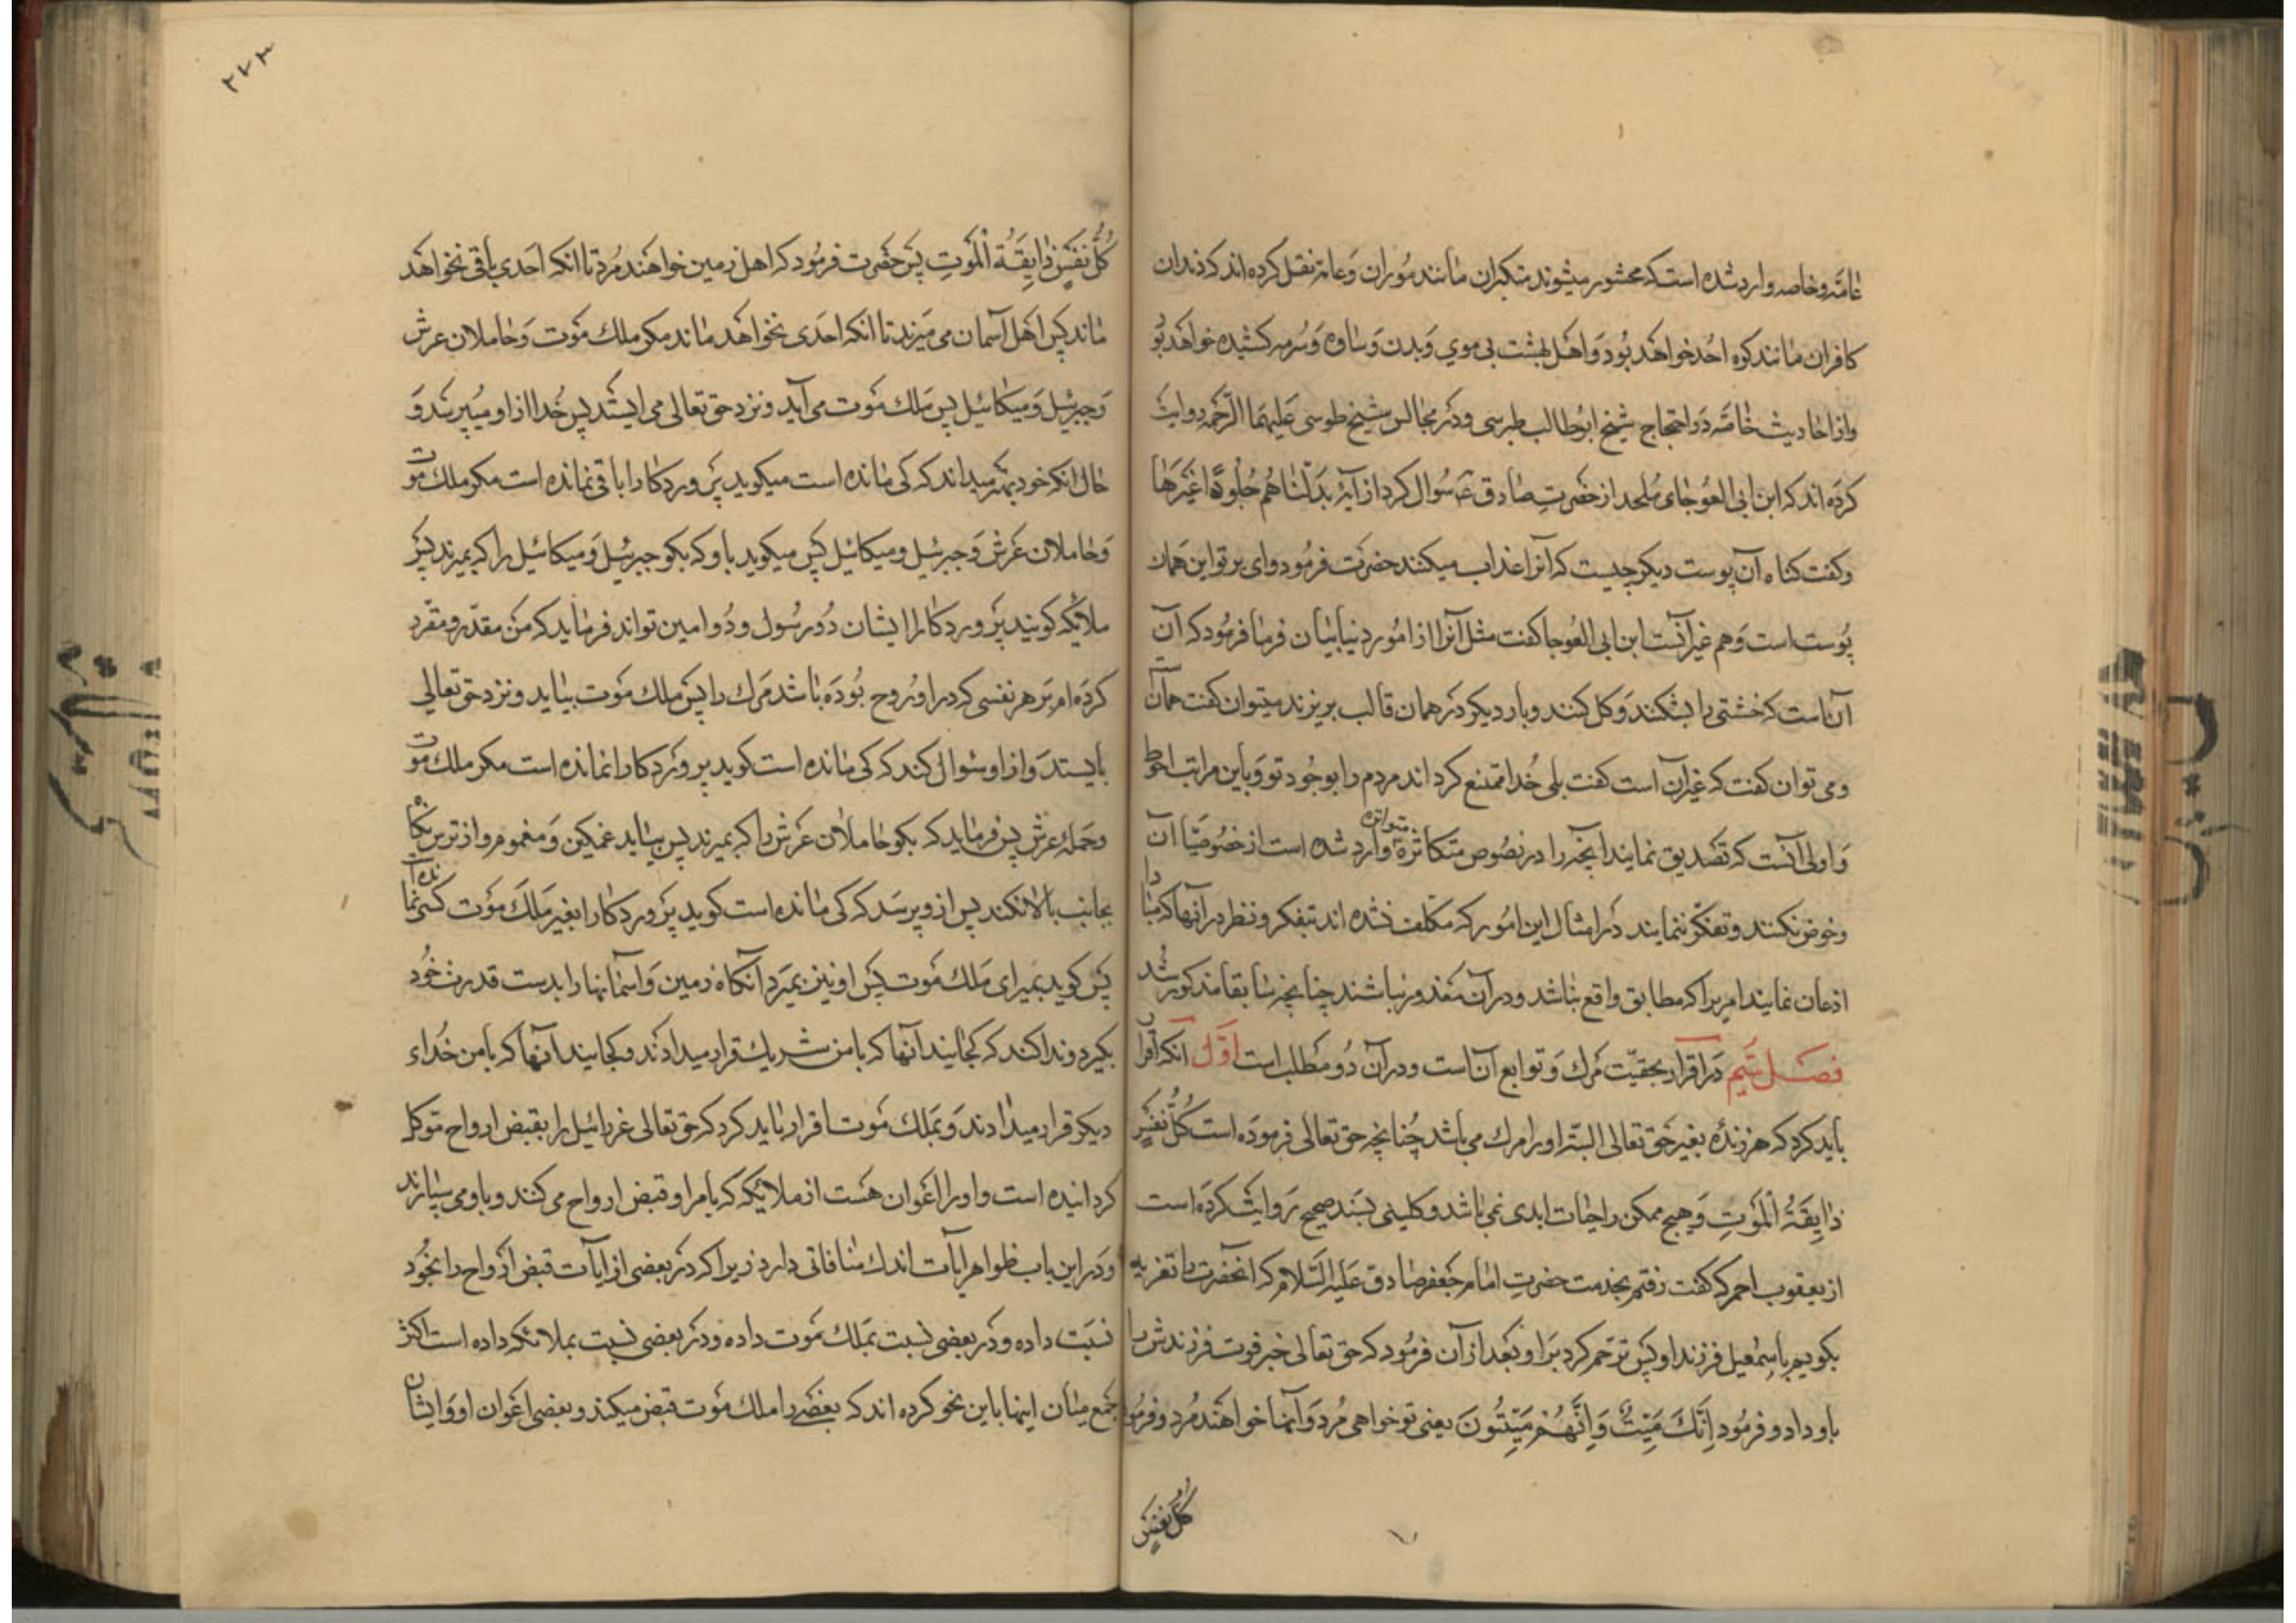 عامّه و خاصه وارد شده است که محشور میشوند متکبران مانند موران و عامه نقل کرده اند که دندان
کافران مانند کوه احُد خواهد بُود وَ اهل بهشت بی موی وَ بدن وَ ساده وَ سُرمه کشیده خواهد بُود
و از احادیث خاصّه دَر احتجاج شیخ ابُوطالب طبرسی و دَر مجالس شیخ طوسی عَلیهمَا الرّحمه روایت
کردَه اند که ابن ابی العوجای مُلحد از حضرتِ صادق ع سُوال کرد از آیهٔ بَدَّلْنَاهُم جُلُودًا غَیْرَهَا
و کفت کناه آن پوست دیکر چیست که آنرا عذاب میکنند حضرَت فرمُود وای بر تو این همان
پُوست است وَ هم غیر آنست ابن ابی العُوجا کفت مثل آنرا از امُور دنیا بیان فرما فرمُود که آن
آنست که خشتی را بشکنند وَ کل کنند و بار دیکر دَر همان قالب بریزند میتوان کفت همانست
و می توان کفت که غیر آن است کفت بلی خُدا متمتع کرداند مردم را بوجُود تو وَ باین مراتب احوط
وَ اولی آنست که تصدیق نمایند آنچه را در نصُوص متکاثرهٔ متواتره وارد شده است از خصُوصیّات آن
و خوض نکنند و تفکر ننمایند دَر امثال این امُور که مکلف نشده اند بتفکر و نظر در آنها که مبادا
اذعان نمایند امریرا که مطابق واقع نباشد و در آن معذور نباشند چنانچه سابقا مذکور شُد
فصَل سَیم دَر اقرار بحقیّت مَرک وَ توابع آن است و در آن دُو مطلب است اَوّل آنکه اقرار
باید کرد که هر زندهٔ بغیر حَق تعالی البتّه او را مرک می باشد چُنانچه حق تعالی فرمودَه است کُلُّ نَفْسٍ
ذَایِقَةُ الْمَوْتِ وَ هیچ ممکن را حیات ابدی نمی باشد و کلینی بسَند صحیح رَوایت کردَه است
از یعقوب احمر که کفت رفتم بخدمت حضرتِ امام جَعفر صادق عَلیه السَّلام که آنحضرت را تعزیه
بکویم باسمعیل فرزند او پس ترحّم کرد بَر او و بَعد از آن فرمُود که حق تعالی خبر فوت فرزندش را
باو داد و فرمُود اِنَّکَ مَیِّتٌ وَ اِنَّهُمْ مَیِّتُونَ یعنی تو خواهی مُرد وَ آنها خواهند مُرد و فرمُود
کُلُّ نَفْسٍ
٢٧٣
کُلُّ نَفْسٍ ذَایِقَةُ الْمَوتِ پس حضرَت فرمُود که اهل زمین خواهند مُرد تا آنکه اَحدی باقی نخواهَد
ماند پس اَهل آسمان می مَیرند تا آنکه احدَی نخواهَد ماند مکر ملك مَوت وَ حاملان عرش
وَ جبرئیل وَ میکائیل پس مَلك مَوت می آید و نزد حق تعالی می ایستد پس خُدا از او میپرسَد وَ
حال آنکه خود بهتر میداند که کی مانده است میکوید پَروردکارا باقی نمانده است مکر ملك موت
وَ حاملان عَرش وَ جبرئیل و میکائیل پس میکوید باو که بکو جبرئیل وَ میکائیل را که بمیرند پس
ملائکه کویند پَروردکارا ایشان دُو رسُول و دُو امین تواند فرماید که مَن مقدّر و مقّرر
کردَه ام بَر هر نفسی که در او رُوح بُودَه باشد مَرك را پس ملك مَوت بیاید و نزد حق تعالی
بایستد وَ از او سُوال کند که کی مانده است کوید پروَردکارا نمانده است مکر ملك موت
و حَملهٔ عرش پس فرماید که بکو حاملان عَرش را که بمیرند پس بیاید غمکین وَ مغموم و از ترس نکاه
بجانب بالا نکند پس از و پرسَد که کی مانده است کوید پَروردکارا بغیر مَلكَ مَوت کسی نمانده است
پس کوید بمیر ای مَلك مَوت پس او نیز بمیرَد آنکاه زمین وَ آسمانها را بدست قدرت خُود
بکیرد و ندا کند که کجایند آنها که با من شریك قرار میدادَند و کجایند آنها که با من خُداء
دیکر قرار میدادند وَ بمَلك مَوت اقرار باید کرد که حق تعالی عزرائیل را بقبض ارواح موَکل
کردانیده است و او را اعَوان هَست از ملائکه که بامر او قبض ارواح می کنند و باو می سپارند
وَ در این باب ظواهر آیات اندك منافاتی دارد زیرا که دَر بعضی از آیات قبض اَرواح را بخُود
نسبَت داده و دَر بعضی نسبت بمَلك مَوت داده و دَر بعضی نسبت بملائکه داده است اکثر
جَمع میان اینها باین نحو کرده اند که بعضَی را ملك مَوت قبض میکند و بعضی اعَوان او وَ ایشان